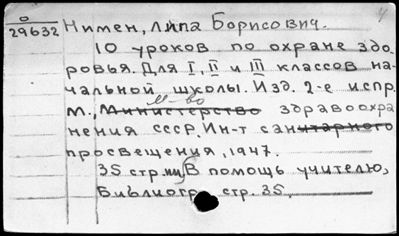 о
29632 Нимен, Липа Борисович.
10 уроков по охране здо-
ровья. Для I, II и III классов на-
чальной школы. Изд. 2-е испр.
м-во
М., Министерство здравоохра
нения СССР. Ин-т санитарного
просвещения, 1947.
35 стр. (В помощь учителю,
Библиогр. стр. 35.